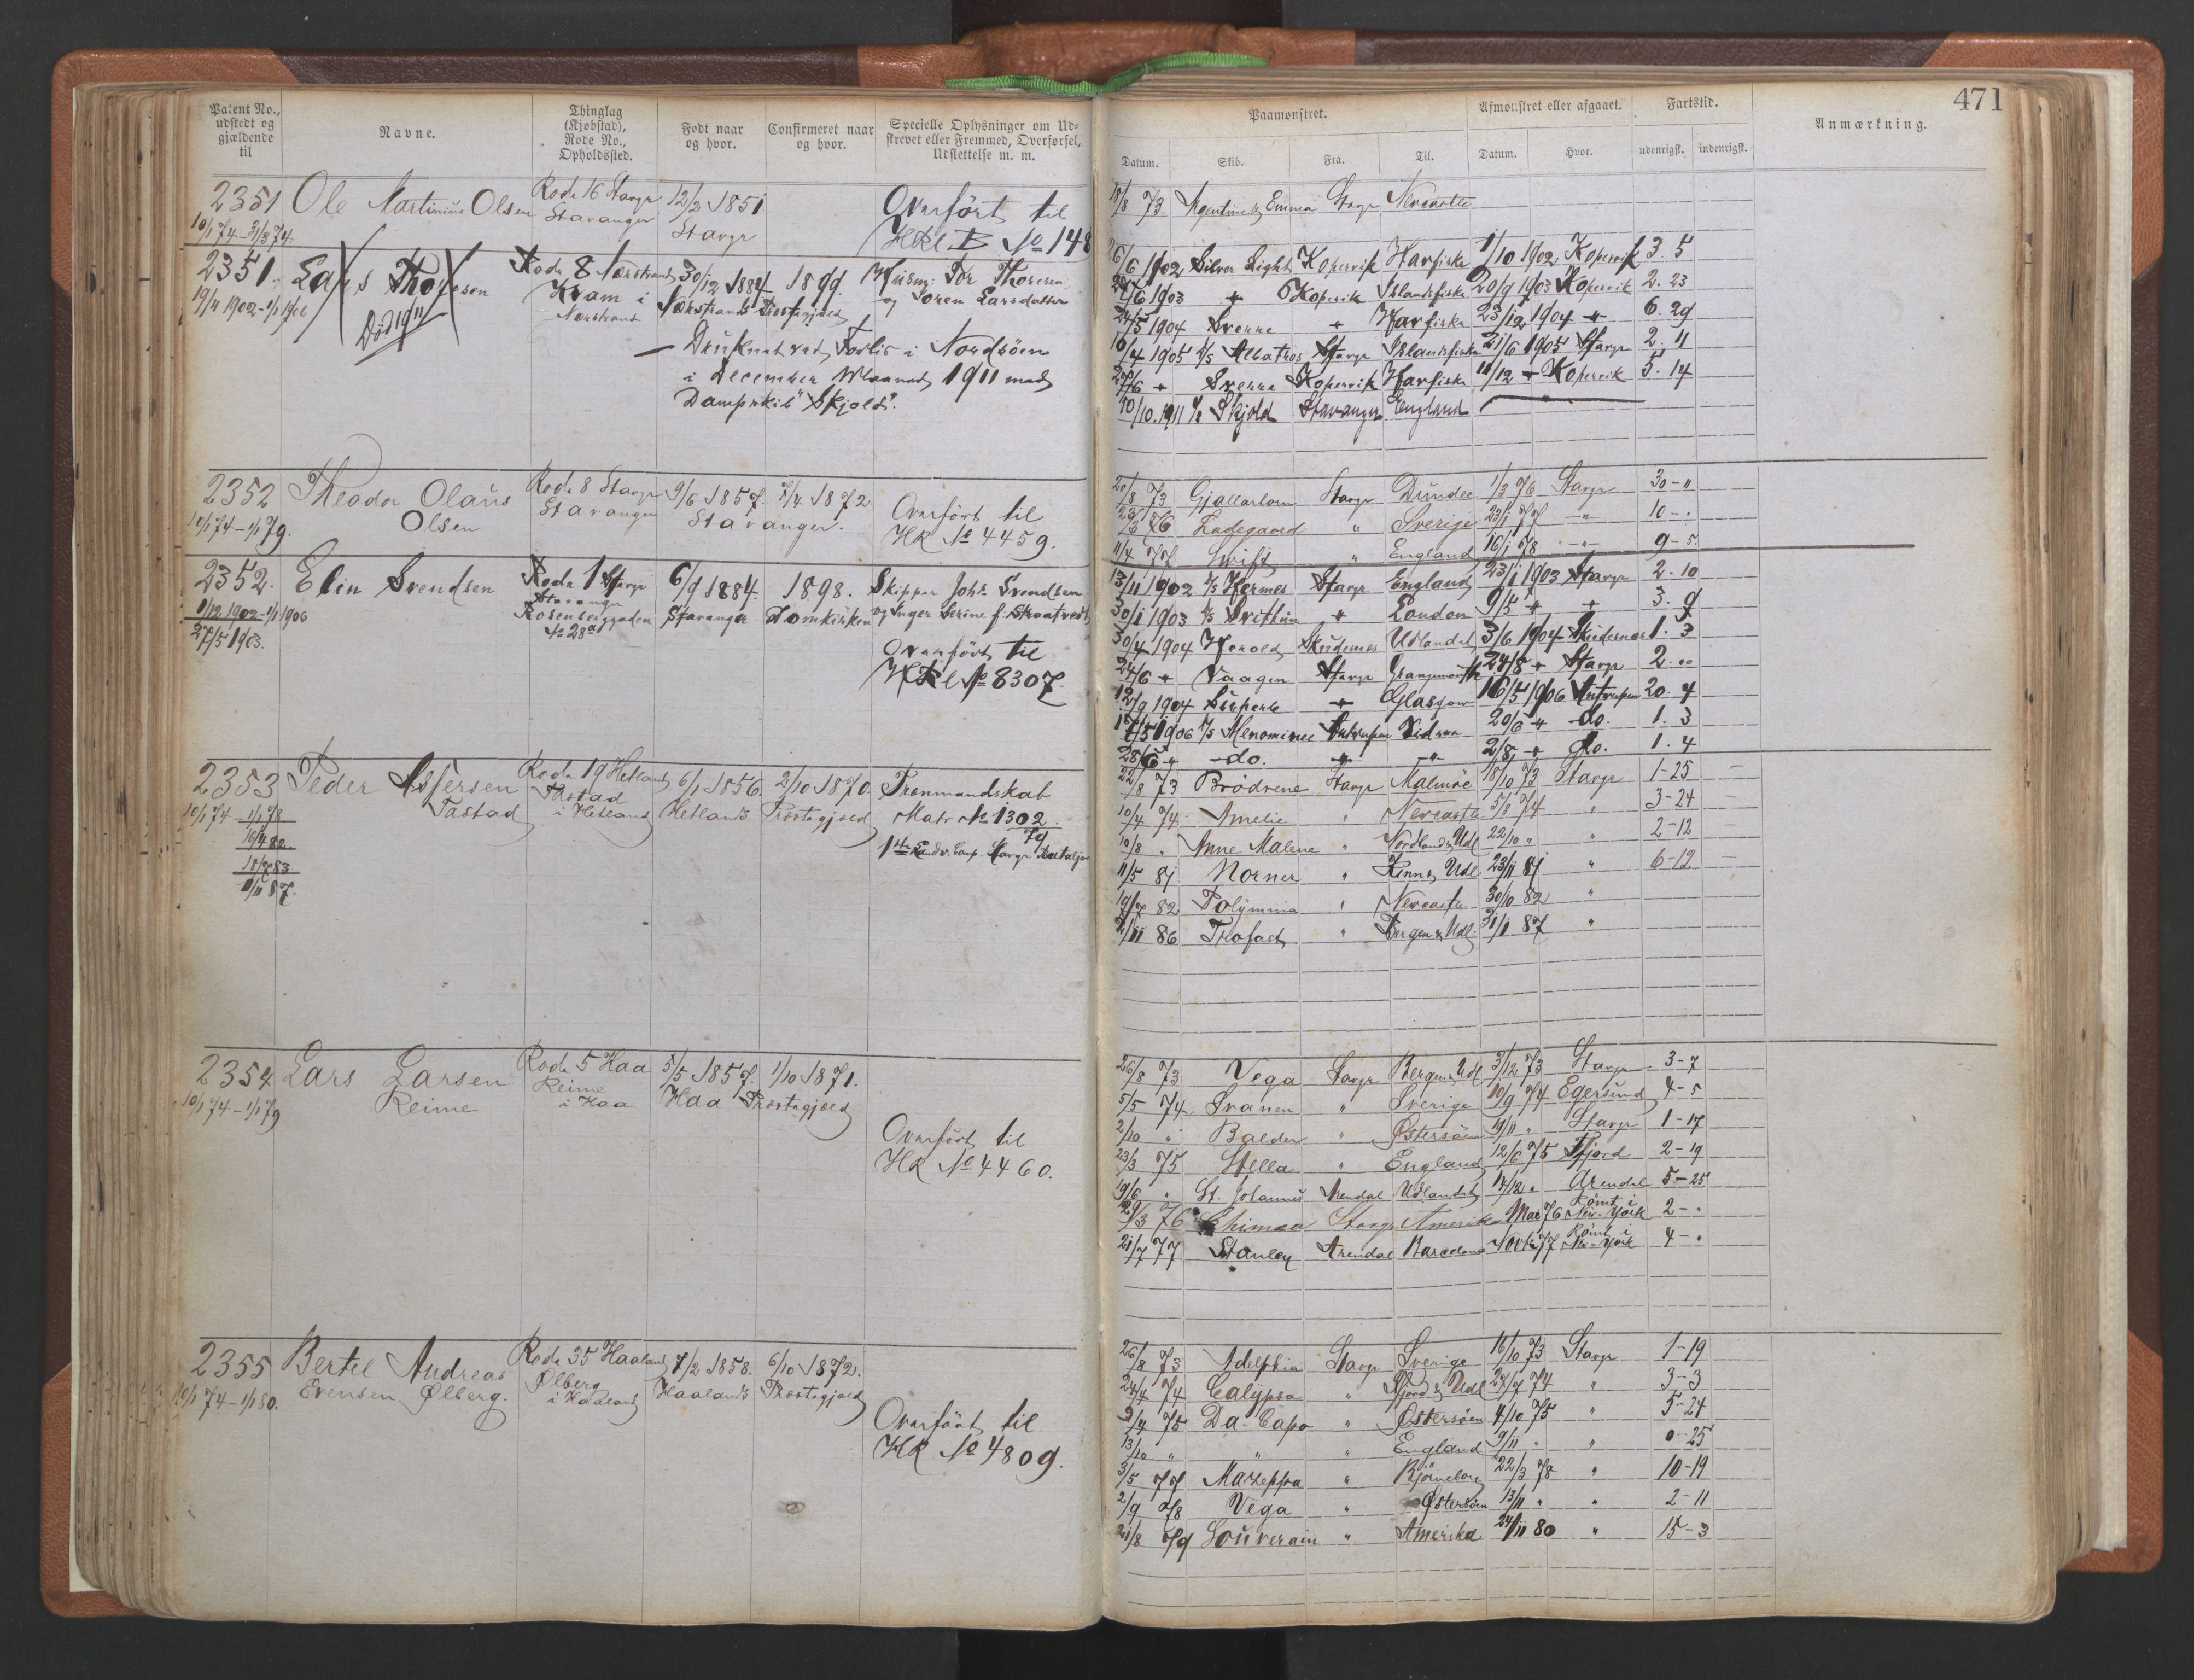 Patent No., udstedt og gjældende til
Navne.
Thinglag (Kjøbstad), Rode No., Opholdssted.
Født naar og hvor.
Confirmeret naar og hvor.
Specielle Oplysninger om Udskrevet eller Fremmed, Overførsel, Udslettelse m. m.
Paamønstret.
Afmønstret eller afgaaet.
Fartstid.
Anmærkning.
471
Datum. Skib. Fra. Til. Datum. Hvor. udenrigsk. indenrigsk.
2351 Ole Martinius Olsen Rode 16 Stavgr 12/2 1851 Overført til
10/1 74 - 31/3 74. Stavanger Stavgr HRl. B No 148
18/8 73 Emma Stavgr Newcastle
2351. Lars Thoresen Rode 8 Nærstrand 30/12 1884 1899. Husm. Tor Thoresen
19/11 1902 - 1/1 1906 Kvam i Nærstrand Nærstrand Præstegjæld og Soren Larsdatter
Død 1911
— Druknet ved Forlis i Nordsöen
i December Maaned 1911 med
Dampskib "Skjold".
16/6 1902 Silver Light Kopervik Havfiske 1/10 1902 Kopervik 3. 5
1903 " Kopervik Islandsfiske 20/9 1903 Kopervik 2. 23
24/5 1904 Sverre " Havfiske 23/12 1904 " 6. 29
10/4 1905 D/S Albatros Stavgr Islandsfiske 21/6 1905 Stavgr 2. 11
27/6 " Sverre Kopervik Havfiske 11/12 " Kopervik 5. 14
10/10. 1911 D/s Skjold Stavanger England
2352 Theodor Olaus Rode 8 Stavgr 9/6 1857. 7/4 1872 Overført til
10/1 74 - 1/1 79. Olsen Stavanger Stavanger. HR No 4459.
20/8 73 Gjallarhorn Stavgr Dundee 1/3 76 Stavgr 30 - "
23/3 76 Ladegaard " Sverige 23/1 77 - " - 10 - .
11/4 77 Swift " England 16/1 78 - " - 9 - 5.
2352. Elin Svendsen Rode 1 Stavgr 6/9 1884. 1898. Skipper Johs. Svendsen
1/12 1902 - 1/1 1906 Stavanger Stavanger Domkirken og Inger Serine f. Straatvedt
27/5 1903. Rosenberggaden No 28a
Overført til
HRl No 8307.
13/11 1902 D/s Hermes Stavgr England 23/1 1903 Stavgr 2. 10
30/1 1903 D/s Svithun " London 9/5 " " 3. 9
30/4 1904 Herold Skudenes Udlandet 3/6 1904 Skudenes 1. 3
24/6 " Vaagen Stavgr Grangemouth 24/8 " Stavgr 2. "
12/9 1904 Superb " Glasgow 16/5 1906 Antwerpen 20. 4
17/5 1906 D/s Menominee Antwerpen Sidvaa 20/6 " do. 1. 3
28/6 " do. " " 2/8 " do. 1. 4
2353 Peder Assersen Rode 19 Hetland 6/1 1856. 2/10 1870. Trænmandskab
10/1 74 - 1/1 78 Tastad Tastad i Hetland Hetlands Præstegjæld Matr No 1302/79
16/4 82.
18/7 83
11/11 87.
1ste Landv. Comp. Stavgr Bataljon
22/8 73 Brödrene Stavgr Malmöe 18/10 73 Stavgr 1 - 25
10/4 74 Amelie " Newcastle 5/8 74 " 3 - 24
10/8 " Anne Malene " Nordland & Udl 22/10 " " 2 - 12
11/5 81 Norner " Kinn & Udl 23/11 81 " 6 - 12
19/7 82 Polymnia " Newcastle 30/10 82 "
2/11 86 Trofast " Bergen & Udl. 31/1 87 "
2354 Lars Larsen Rode 5 Haa 5/5 1857. 1/10 1871.
10/1 74 - 1/1 79 Reime Reime i Haa Haa Præstegjæld
Overført til
HR No 4460.
26/8 73 Vega Stavgr Bergen & Udl 3/12 73 Stavgr 3 - 7
5/5 74 Svanen " Sverige 10/9 74 Egersund 4 - 5
2/10 " Balder " Østersöen 19/11 " Stavgr 1 - 17
23/3 75 Stella " England 12/6 75 Fjord 2 - 19
19/6 " St. Johannes Arendal Udlandet 14/12 " Arendal 5 - 25
29/3 76 Chimæra Stavgr Amerika Mai 76 Römt i New-York 2 - .
21/7 77 Stanley Arendal Barcelona Novbr 77 Römt i New-York 4 - .
2355 Bertel Andreas Rode 35 Haaland 7/2 1858. 6/10 1872.
10/1 74 - 1/1 80. Evensen Ølberg. Ølberg i Haaland Haalands Præstegjæld
Overført til
HR No 4809.
26/8 73 Adelphia Stavgr Sverige 16/10 73 Stavgr 1 - 19
24/4 74 Calypso " Fjord & Udl 27/7 74 " 3 - 3
9/4 75 Da-Capo " Østersöen 4/10 75 " 5 - 24
13/10 " " " England 9/11 " " 0 - 25
3/5 77 Mazeppa " Björneborg 22/3 78 " 10 - 19
2/9 78 Vega " Østersöen 13/11 " " 2 - 11
21/8 79 Souverain " Amerika 24/11 80 " 15 - 3